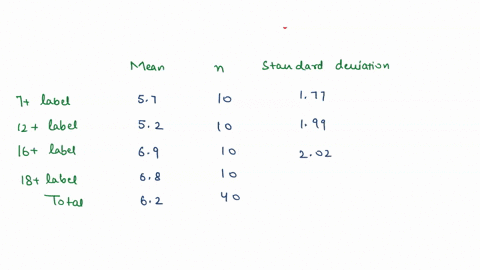 Mean n Standard deviation
7+ label 5.7 10 1.77
12+ label 5.2 10 1.99
16+ label 6.9 10 2.02
18+ label 6.8 10
Total 6.2 40